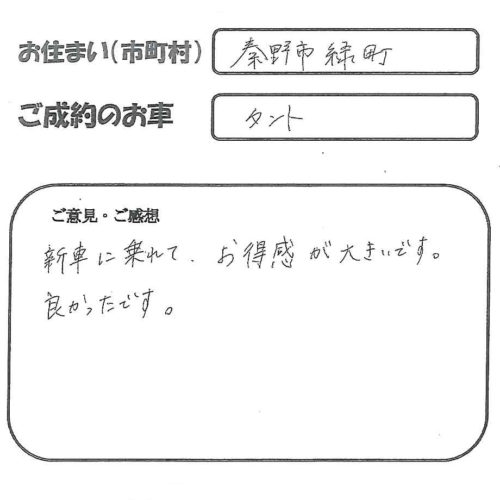 お住まい(市町村) 秦野市緑町
ご成約のお車 タント
ご意見・ご感想
新車に乗れて、お得感が大きいです。
良かったです。